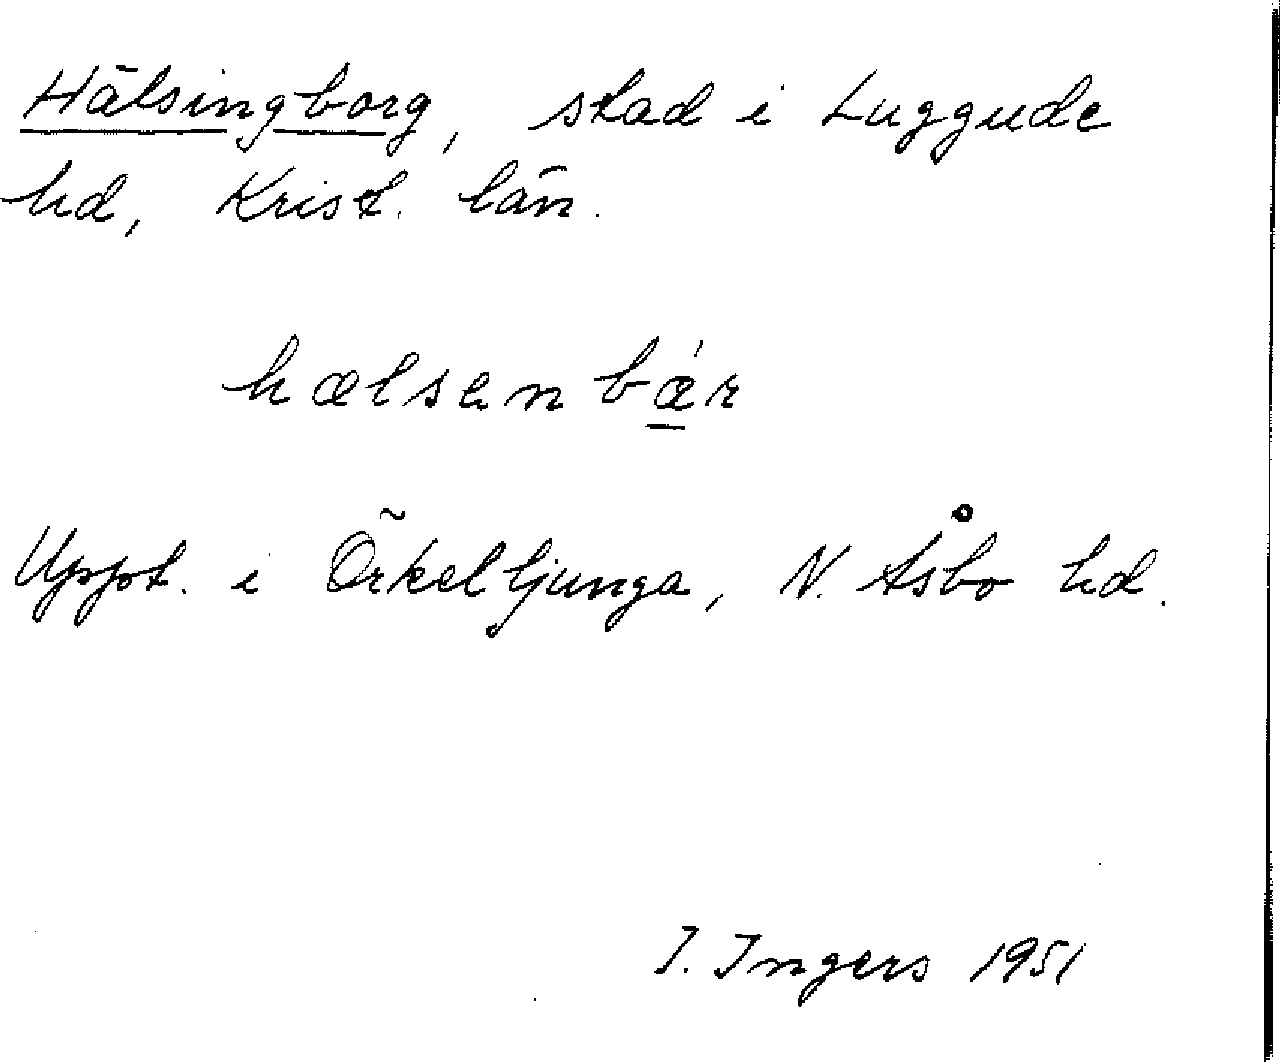 Hälsingborg, stad i Luggude
hd, Krist. län.
hælsenbǽr
Uppt. i Örkelljunga, N. Åsbo hd.
I. Ingers 1951